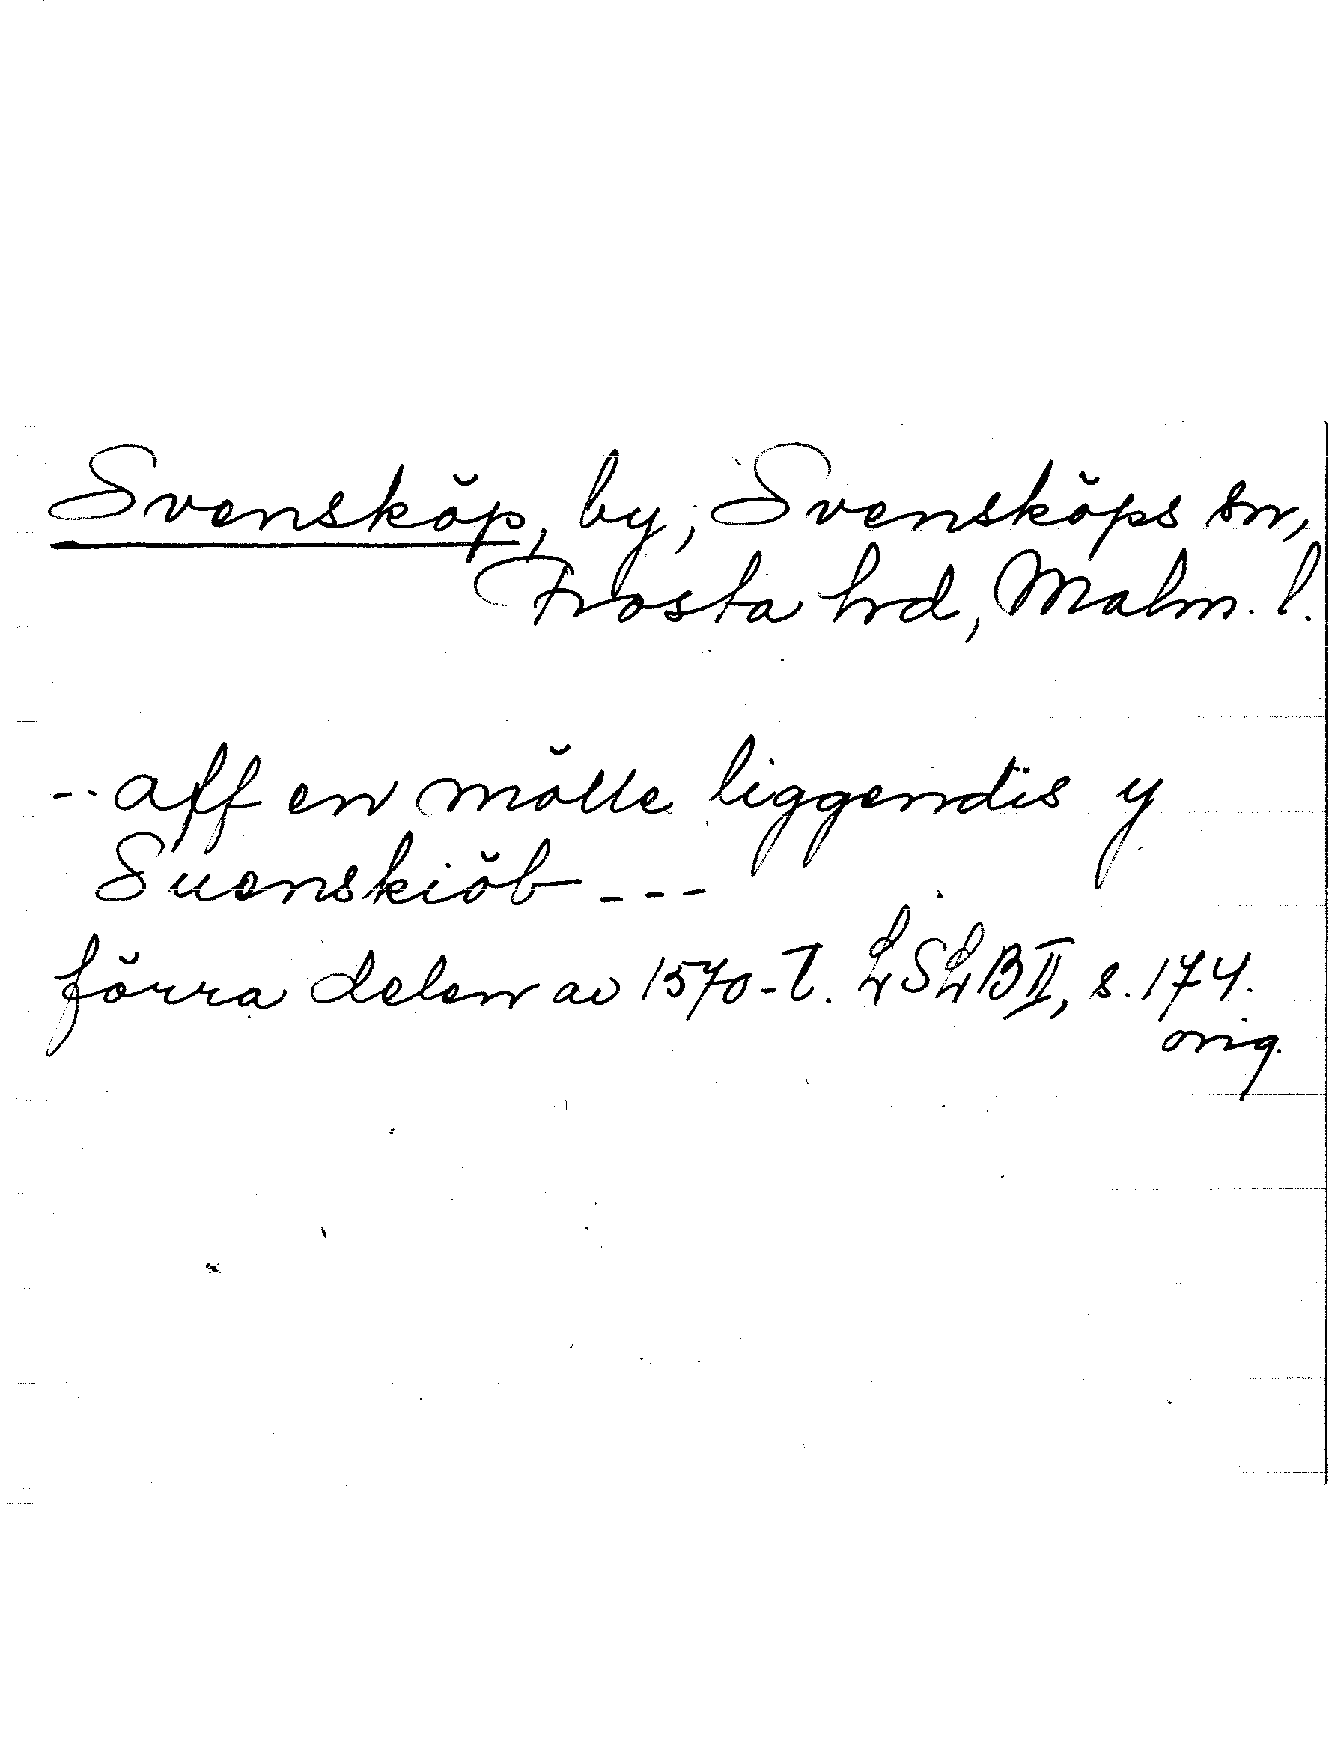 Svensköp, by, Svensköps sn,
Frosta hrd, Malm. l.
-- aff en mölle liggendis y
Suenskiöb ---
förra delen av 1570-t. LSLB II, s. 174.
orig.